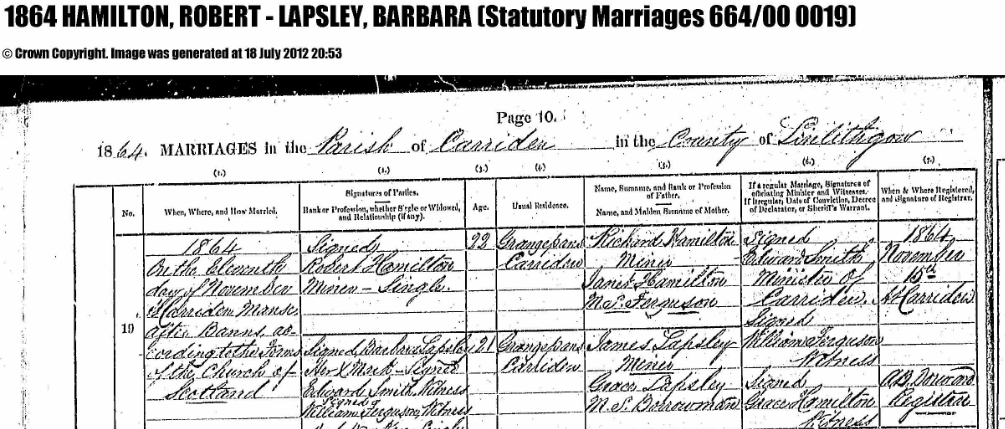 1864 HAMILTON, ROBERT - LAPSLEY, BARBARA (Statutory Marriages 664/00 0019)
© Crown Copyright. Image was generated at 18 July 2012 20:53
Page 10.
1864. MARRIAGES in the Parish of Carriden in the County of Linlithgow
(1.) (2.) (3.) (4.) (5.) (6.) (7.)
No.
When, Where, and How Married.
Signatures of Parties.
Rank or Profession, whether Single or Widowed,
and Relationship (if any).
Age.
Usual Residence.
Name, Surname, and Rank or Profession
of Father.
Name, and Maiden Surname of Mother.
If a regular Marriage, Signatures of
officiating Minister and Witnesses.
If Irregular, Date of Conviction, Decree
of Declarator, or Sheriff's Warrant.
When & Where Registered,
and Signature of Registrar.
19
1864
On the Eleventh
day of November
Carriden Manse
after Banns, ac-
cording to the Forms
of the Church of
Scotland
Signed
Robert Hamilton
Miner - Single.
22
Grangepans
Carriden
Richard Hamilton
Miner
Janet Hamilton
M.S. Ferguson
Signed
Edward Smith
Minister of
Carriden
Signed
William Ferguson
Witness
1864
November
15th
At Carriden
Signed Barbara Lapsley
Her X Mark - Signed
Edward Smith Witness
Signed
William Ferguson Witness
21
Grangepans
Carriden
James Lapsley
Miner
Grace Lapsley
M.S. Borrowman
Signed
Grace Hamilton
Witness
Registrar